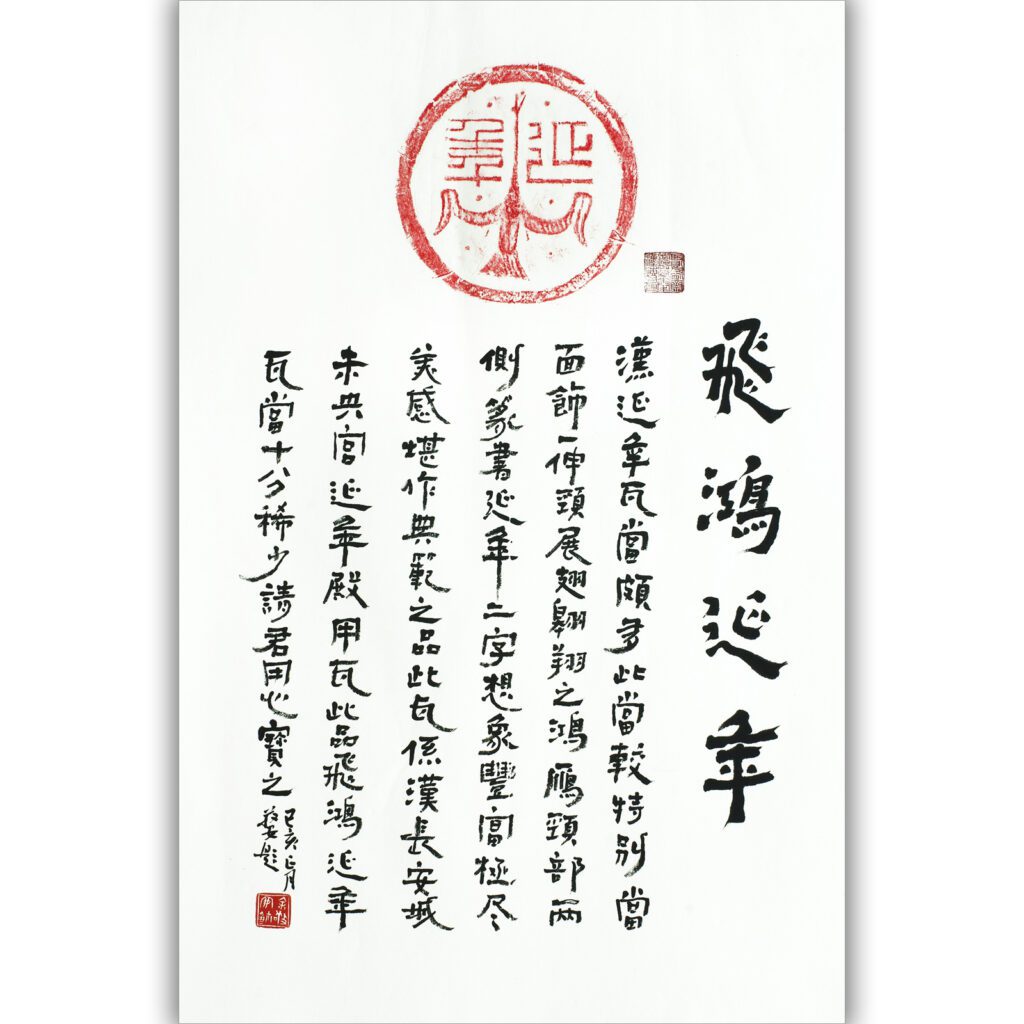 延年
飛鴻延年
漢延年瓦當頗多此當較特別當
面飾一伸頸展翅翱翔之鴻鴈頸部兩
側篆書延年二字想象豐富極尽
美感堪作典範之品此瓦係漢長安城
未央宮延年殿用瓦此品飛鴻延年
瓦當十分稀少請君用心寶之
己亥正月
題